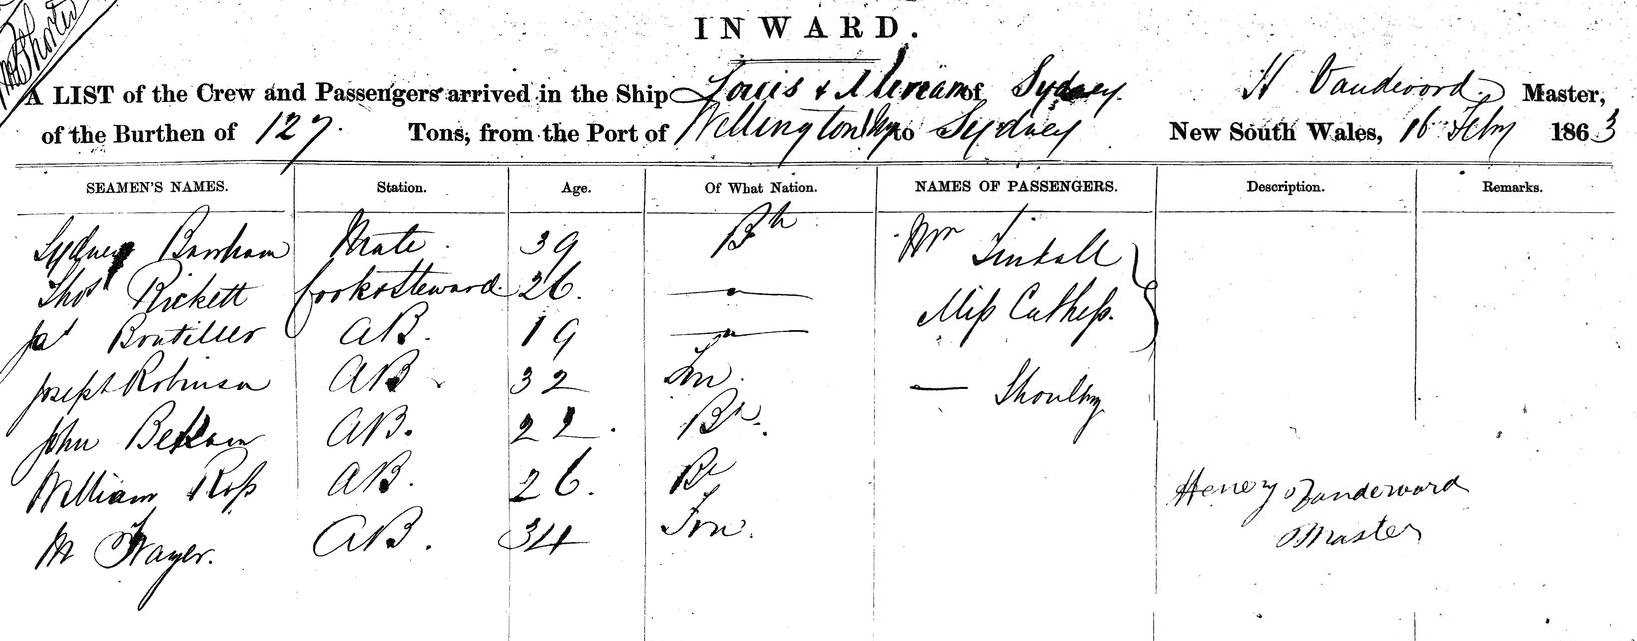 INWARD.
A LIST of the Crew and Passengers arrived in the Ship Louis & Miriam of Sydney. H Vandeword. Master,
of the Burthen of 127. Tons, from the Port of Wellington to Sydney New South Wales, 16 Feby 1863
SEAMEN'S NAMES. Station. Age. Of What Nation. NAMES OF PASSENGERS. Description. Remarks.
Sydney Barnham Mate. 39 Bh Mr Tindall
Thos Rickett Cook & Steward. 26. — " — Miss
Jas Boutiller AB. 19 — " —
Joseph Robinson AB. 32 Fon. —
John AB. 22. Br.
William Roſs AB. 26. Br Henry Vandeword
M Frayer. AB. 34 Fon. Master